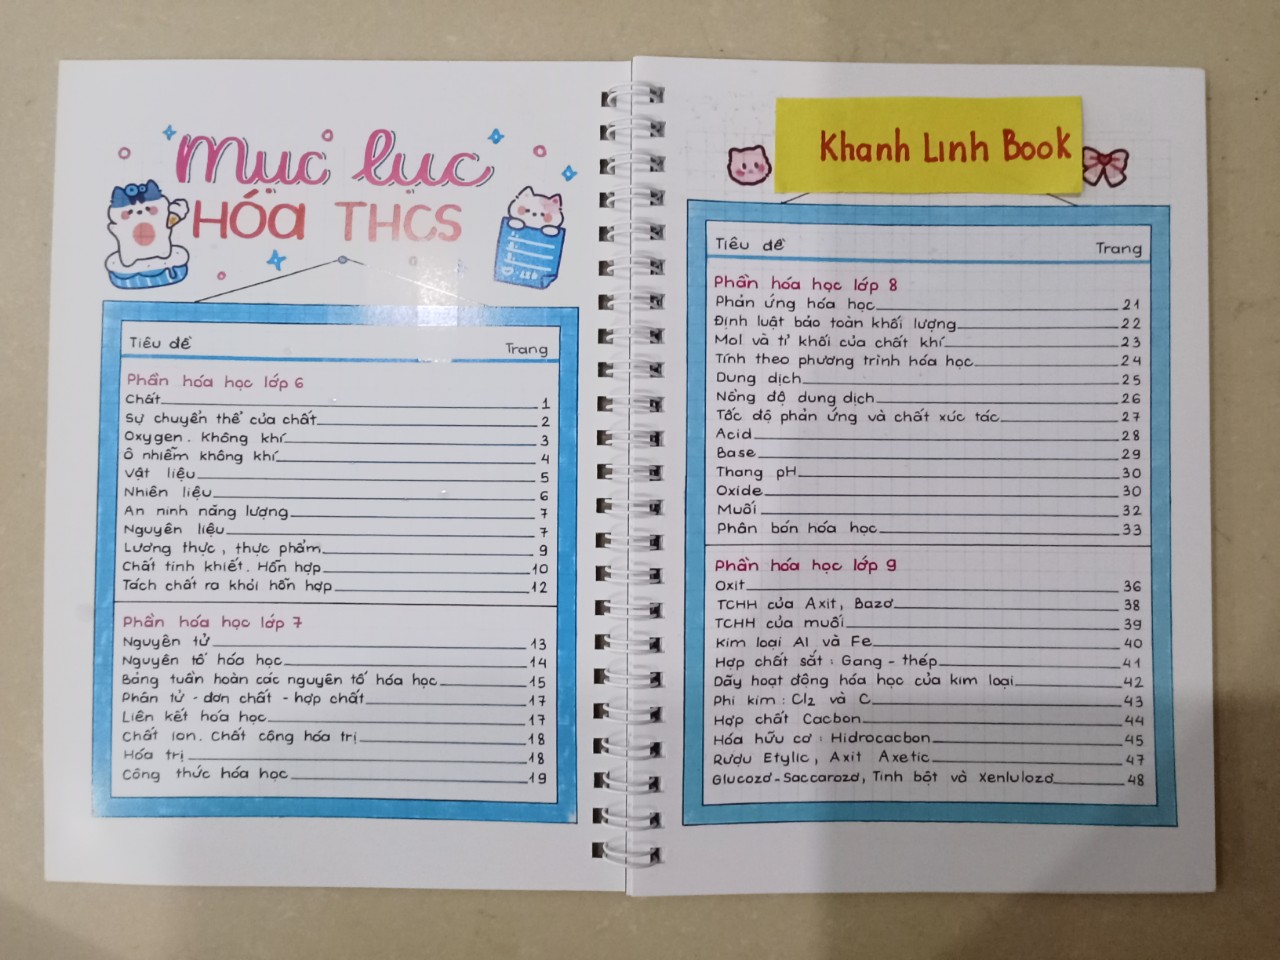 Mục lục
HÓA THCS
Tiêu đề Trang
Phần hóa học lớp 6
Chất 1
Sự chuyển thể của chất 2
Oxygen. Không khí 3
Ô nhiễm không khí 4
Vật liệu 5
Nhiên liệu 6
An ninh năng lượng 7
Nguyên liệu 7
Lương thực, thực phẩm 9
Chất tinh khiết. Hỗn hợp 10
Tách chất ra khỏi hỗn hợp 12
Phần hóa học lớp 7
Nguyên tử 13
Nguyên tố hóa học 14
Bảng tuần hoàn các nguyên tố hóa học 15
Phân tử - đơn chất - hợp chất 17
Liên kết hóa học 17
Chất ion. Chất cộng hóa trị 18
Hóa trị 18
Công thức hóa học 19
Khanh Linh Book
Tiêu đề Trang
Phần hóa học lớp 8
Phản ứng hóa học 21
Định luật bảo toàn khối lượng 22
Mol và tỉ khối của chất khí 23
Tính theo phương trình hóa học 24
Dung dịch 25
Nồng độ dung dịch 26
Tốc độ phản ứng và chất xúc tác 27
Acid 28
Base 29
Thang pH 30
Oxide 30
Muối 32
Phân bón hóa học 33
Phần hóa học lớp 9
Oxit 36
TCHH của Axit, Bazơ 38
TCHH của muối 39
Kim loại Al và Fe 40
Hợp chất sắt: Gang - thép 41
Dãy hoạt động hóa học của kim loại 42
Phi kim: Cl2 và C 43
Hợp chất Cacbon 44
Hóa hữu cơ: Hidrocacbon 45
Rượu Etylic, Axit Axetic 47
Glucozơ-Saccarozơ, Tinh bột và Xenlulozơ 48